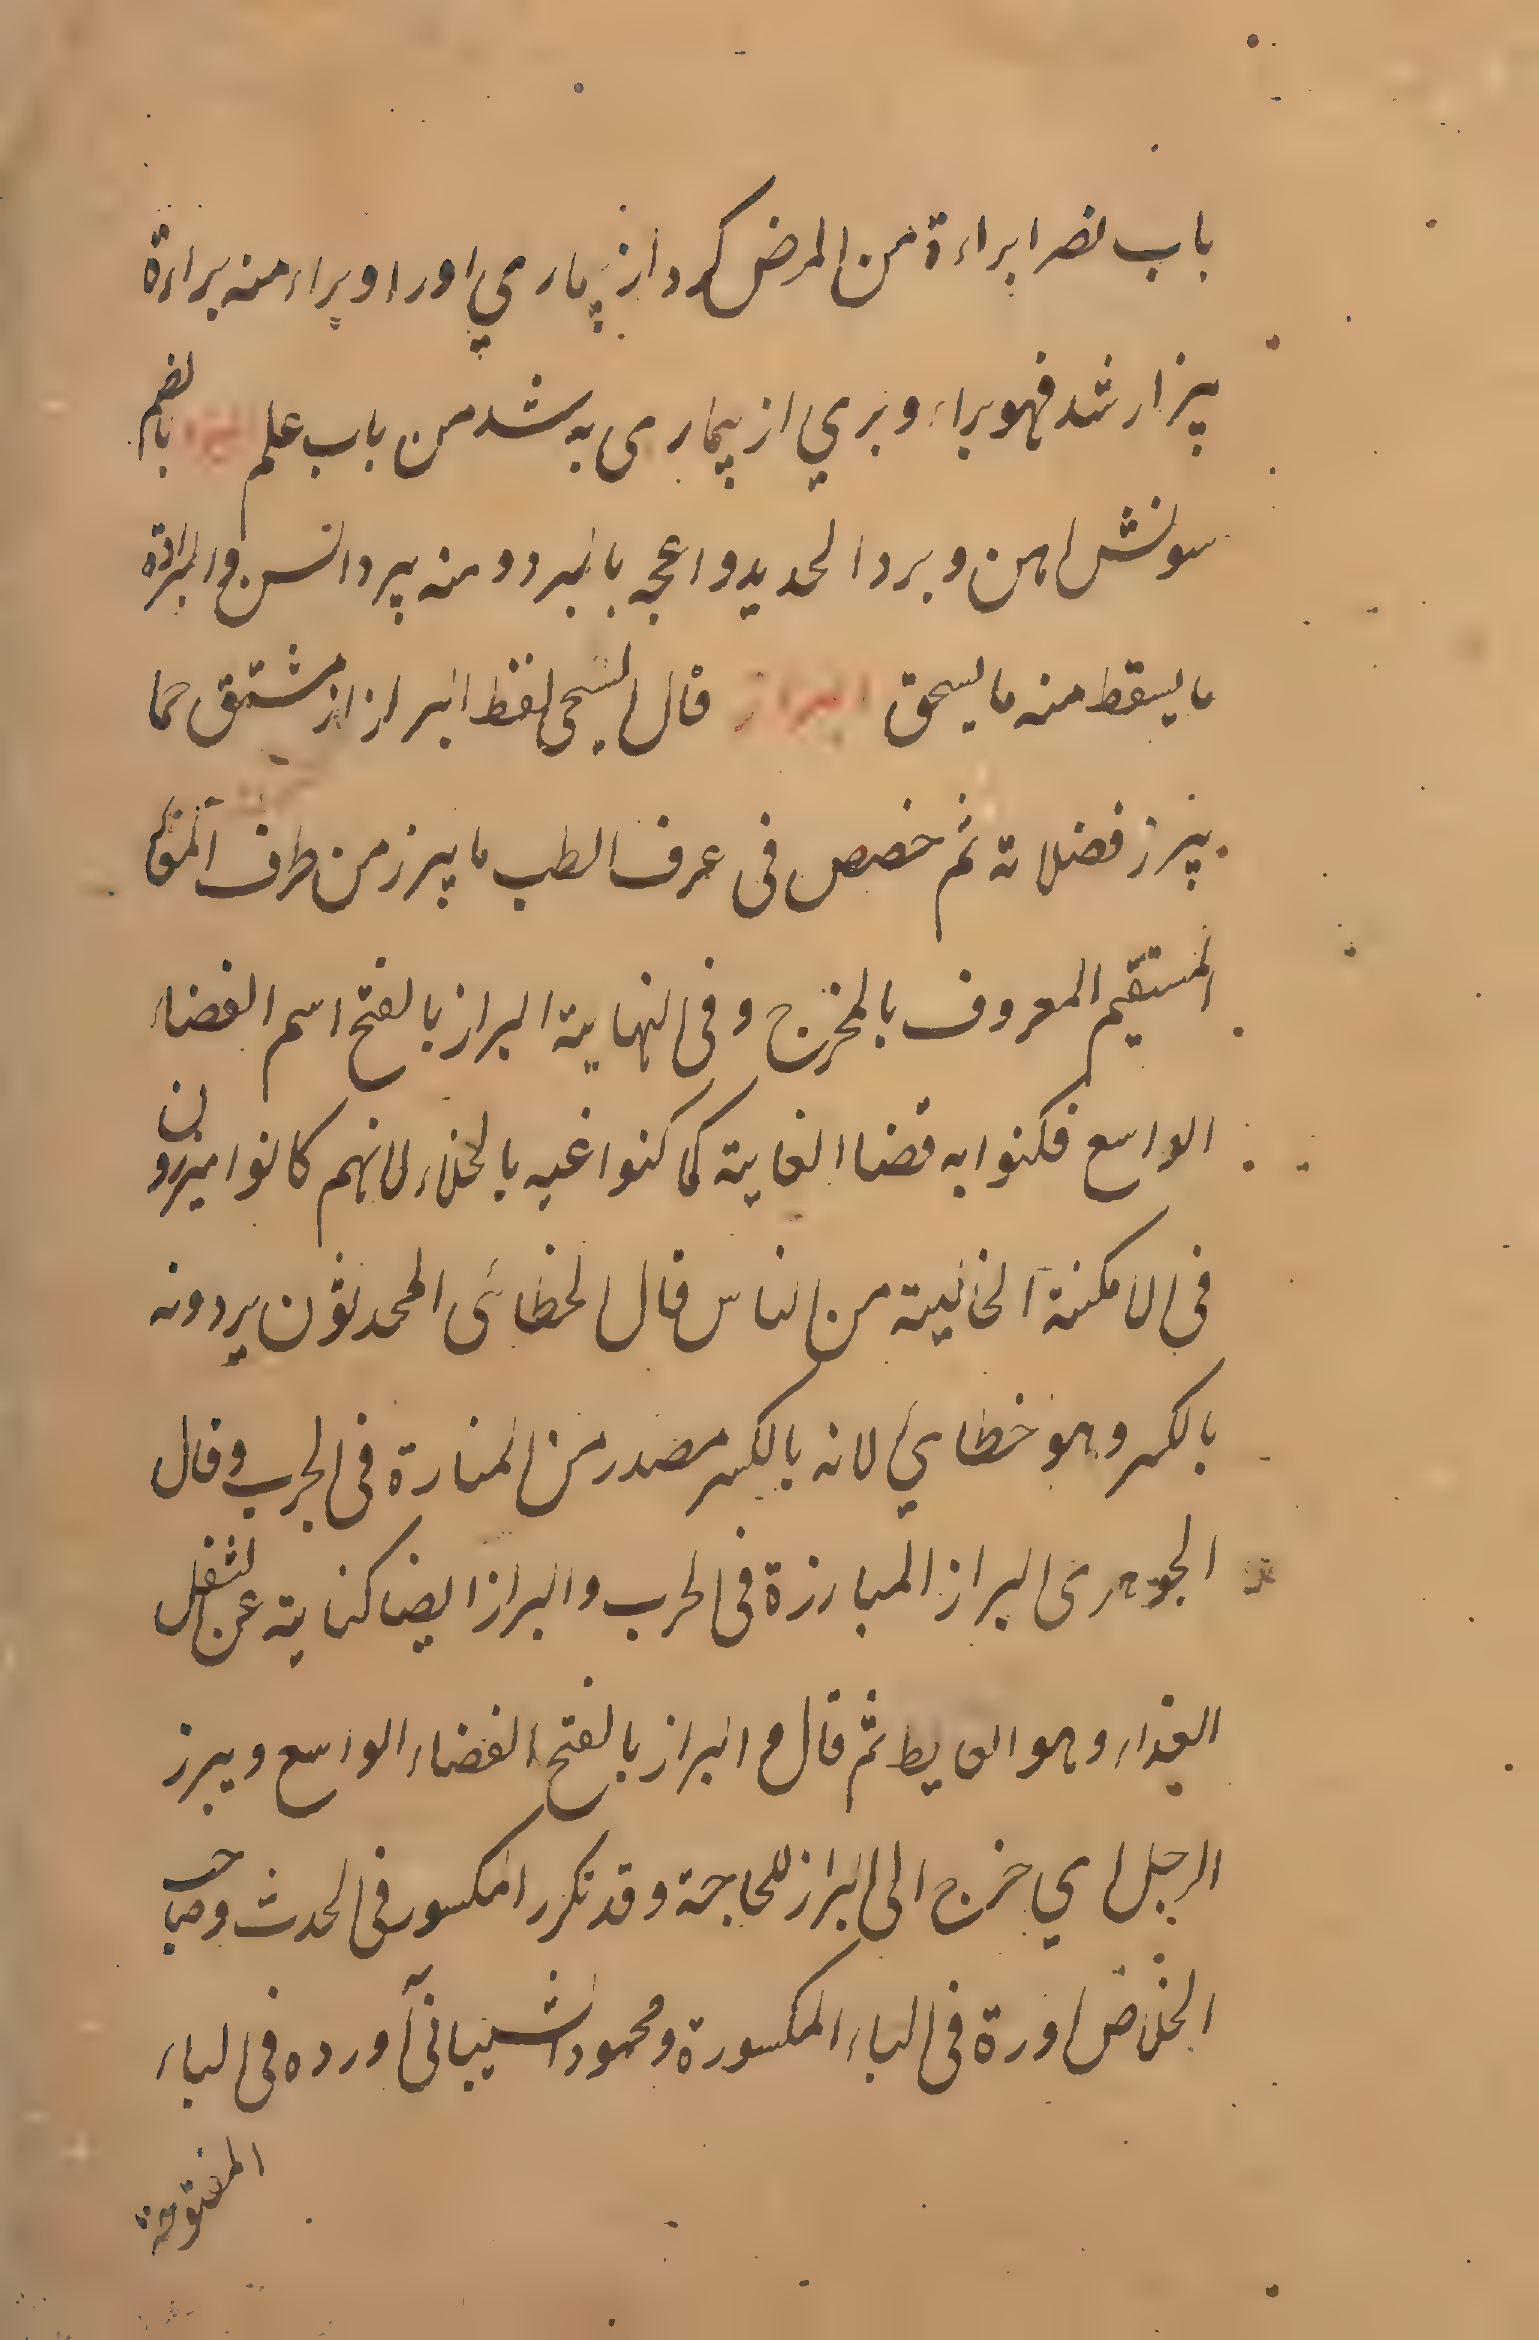 باب نصر ابراءة من المرض كرد از بيماري اورا وبراء منه براءة
بيزار شد فهو براء وبري از بيماری به شد من باب علم بالضم
سونش اهن وبرد الحديد واعجه بالمبرد ومنه يبرد النس والبرادة
ما يسقط منه ما يسحق البراز قال لفظ البراز از مشتق حما
يبرز فضلاته ثم خصص فى عرف الطب ما يبرز من طرف المعاء
المستقيم المعروف بالمخرج وفى النهاية البراز بالفتح اسم الفضاء
الواسع فكنوا به قضا الغاية كما كنوا عنه بالخلاء لانهم كانوا يبرزون
فى الامكنة الخالية من الناس قال الخطائى المحدثون يردونه
بالكسر وهو خطاي لانه بالكسر مصدر من المبارزة فى الحرب وقال
الجوهرى البراز المبارزة فى الحرب والبراز ايضا كناية عن ثفل
الغذاء وهو الغايط ثم قال والبراز بالفتح الفضاء الواسع ويبرز
الرجل اي خرج الى البراز للحاجة وقد تكرر المكسور فى الحدث وصاحب
الخلاص اورة فى الباء المكسورة ومحمود الشيبانى آورده فى الباء
المفتوحة